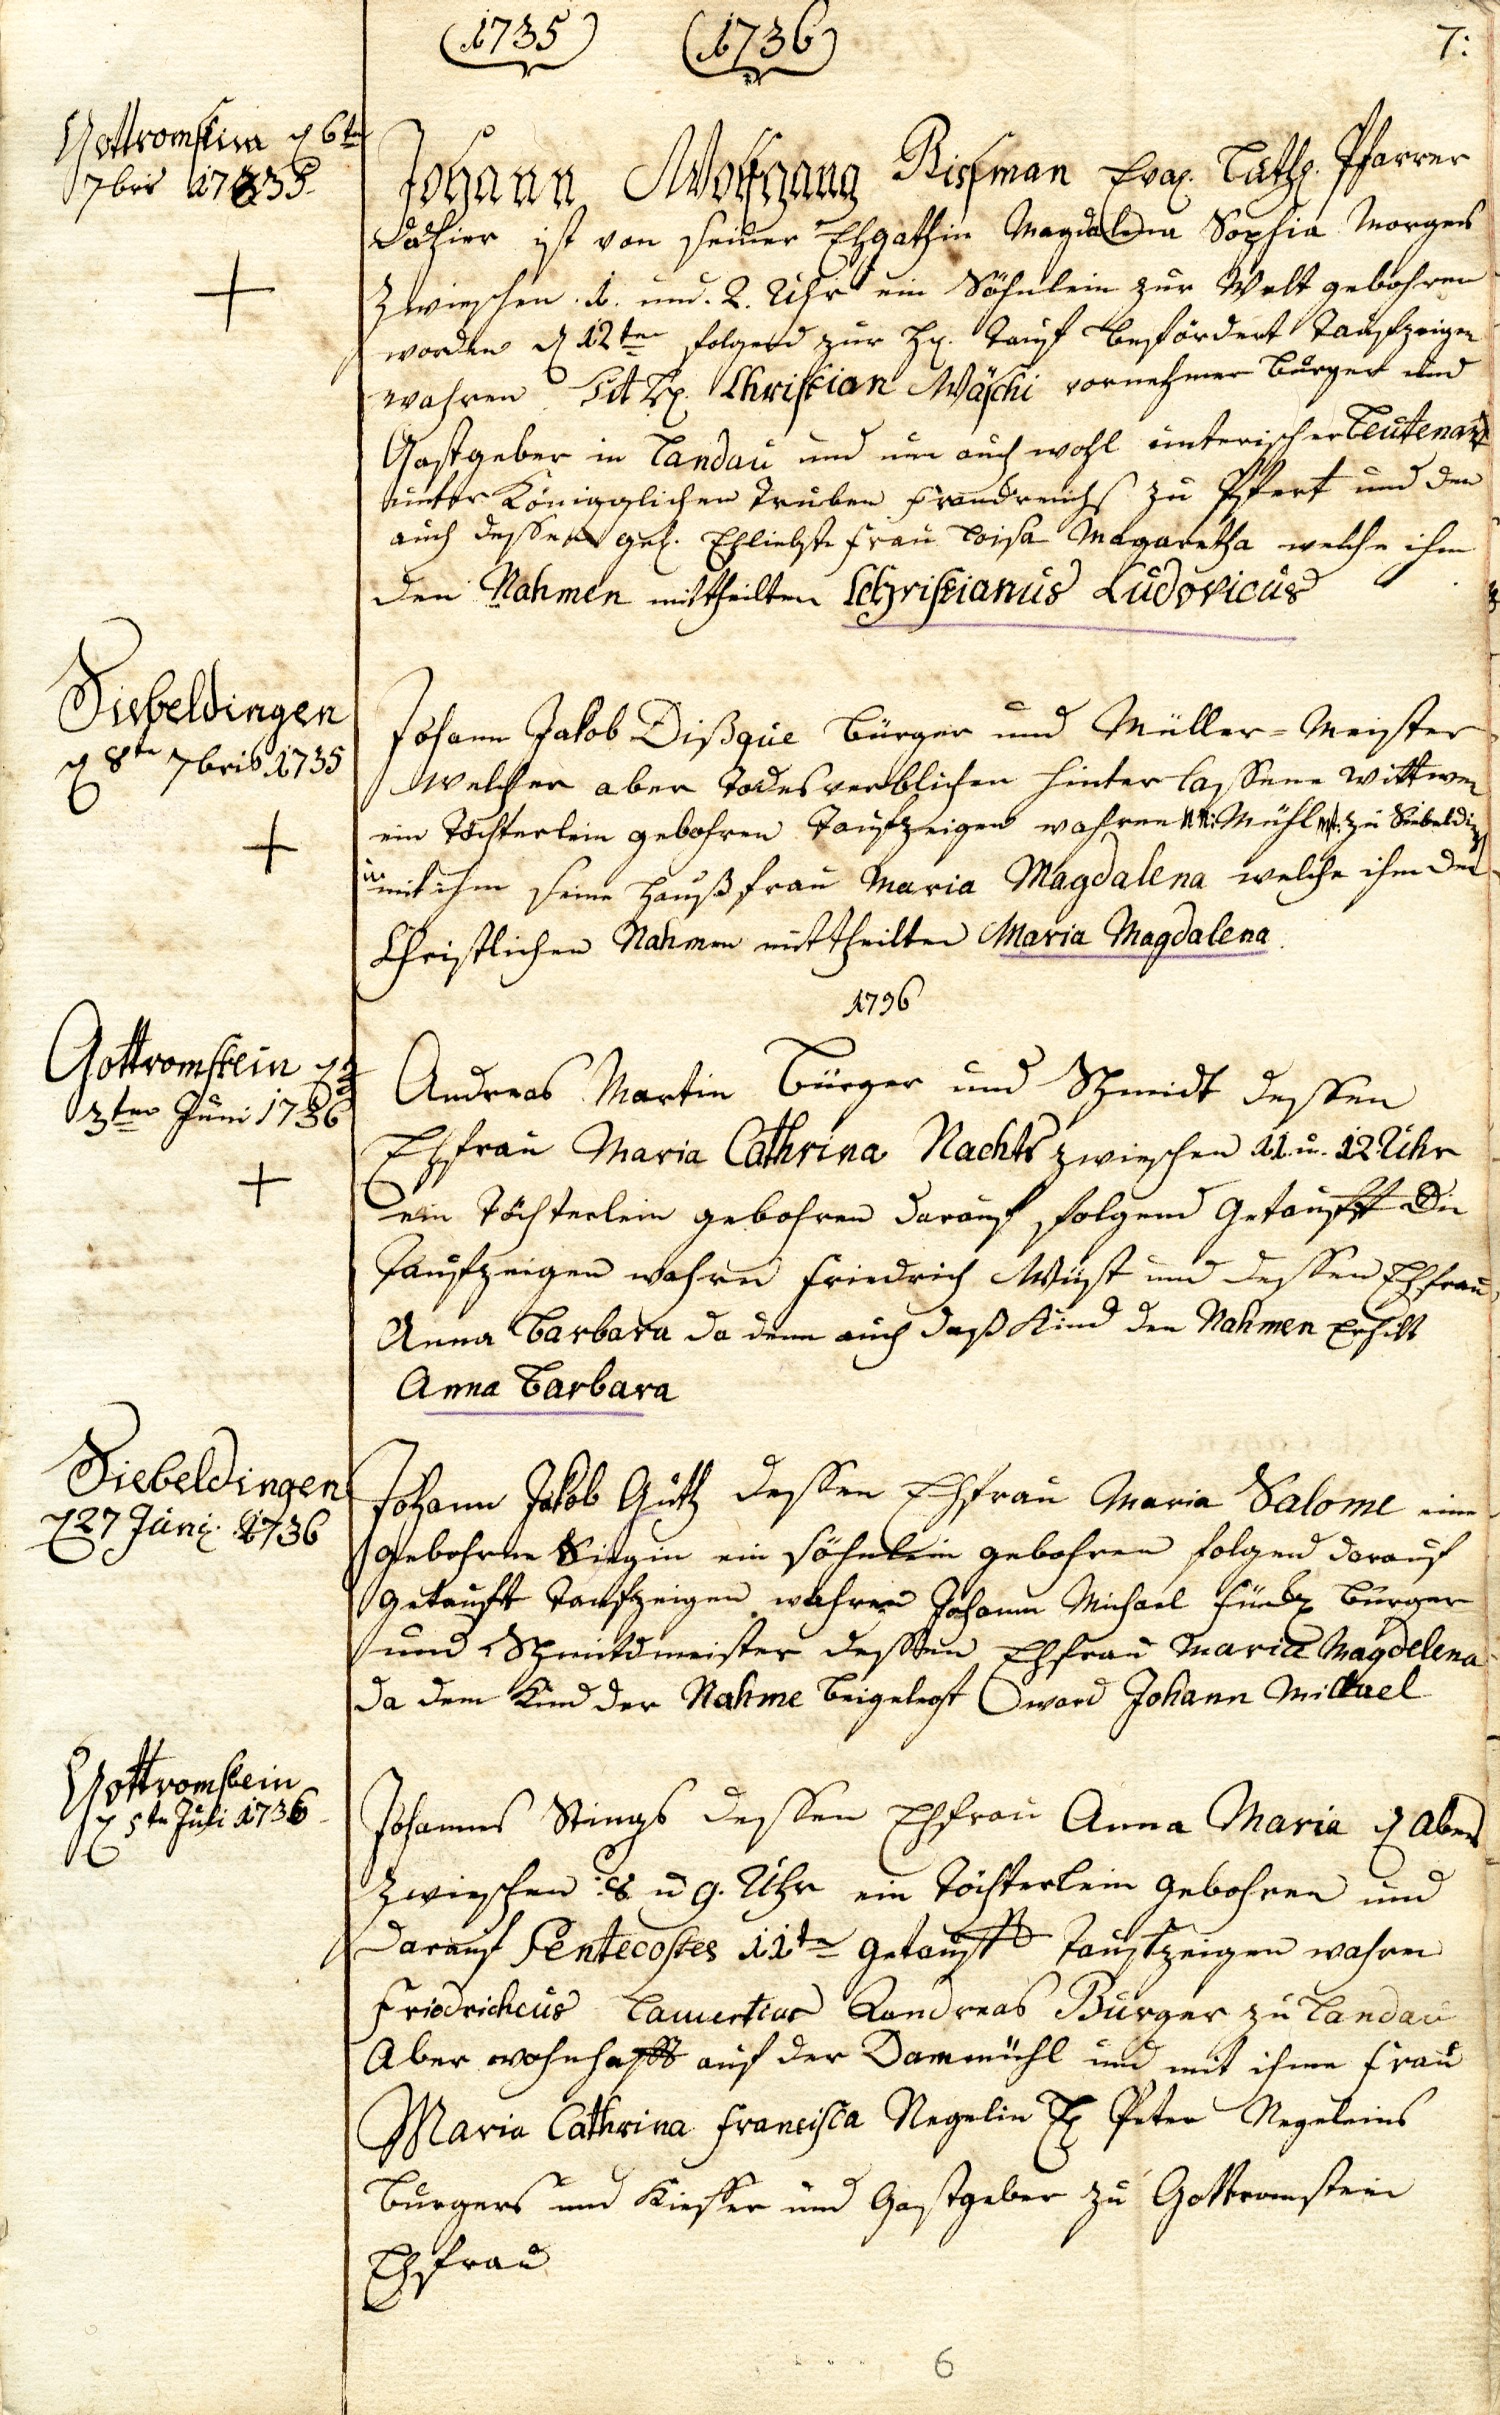 1735 1736 7:
Gottromstein d 6ten
7bris 1735
Johann Wolfgang Rissman Evag. Luthr. Pfarrer
dahier ist von seiner Ehgathin Magdalena Sophia Morgens
Zwieschen .1. und .2. Uhr ein Söhnlein zur Welt gebohren
worden d 12ten folgend zur Hl. Tauf befördert Taufzeigen
wahren Tit H. Christian Wäschi vornehmer Burger und
Gastgeber in Landau und nun auch wohl Leutenant
unter Königglichen Truben Frandreichs zu Pfert und den
auch dessen gel. Ehliebste Frau Loisa Magaretha welche ihm
den Nahmen mittheilten Christianus Ludovicus
Siebeldingen
d 8ten 7bris 1735
Johann Jakob Dißque Bürger und Müller-Meister
Welcher aber Todesverblichen hinterlassene Wittwe
ein Töchterlein gebohren Taufzeigen wahren N.N. Mühl zu Siebelding
u. mit ihm seine Haußfrau Maria Magdalena welche ihm den
Christlichen Nahmen mittheilten Maria Magdalena.
1736
Gottromstein d
3ten Juni 1736
Andreas Martin Bürger und Schmidt dessen
Ehfrau Maria Cathrina Nachts zwieschen 11. u. 12 Uhr
ein Töchterlein gebohren darauf folgend Getaufft Die
Taufzeigen wahren Friedrich Wüst und dessen Ehfrau
Anna Barbara da denn auch daß Kind den Nahmen Erhilt
Anna Barbara
Siebeldingen
d 27 Juni 1736
Johann Jakob Guth dessen Ehfrau Maria Salome eine
Gebohrne Singin ein söhnlein gebohren folgend darauf
Getauft Taufzeigen wahren Johann Michael Burger
und Schmitdmeister dessen Ehfrau Maria Magdelena
da dem Kind der Nahme beigelegt ward Johann Michael
Gottromstein
d 5ten Juli 1736
Johannes Stings dessen Ehfrau Anna Maria d Abens
Zwieschen 8 u 9. Uhr ein Töchterlein gebohren und
darauf Pentecostes 11ten getauft Taufzeigen wahren
Friedrichcus Andreas Burger zu Landau
Aber wohnhafft auf der Dammühl und mit ihme Frau
Maria Cathrina Francisca Negelin H Peter Negeleins
Burgers und Kieffer und Gastgeber zu Gottromstein
Ehfrau
6